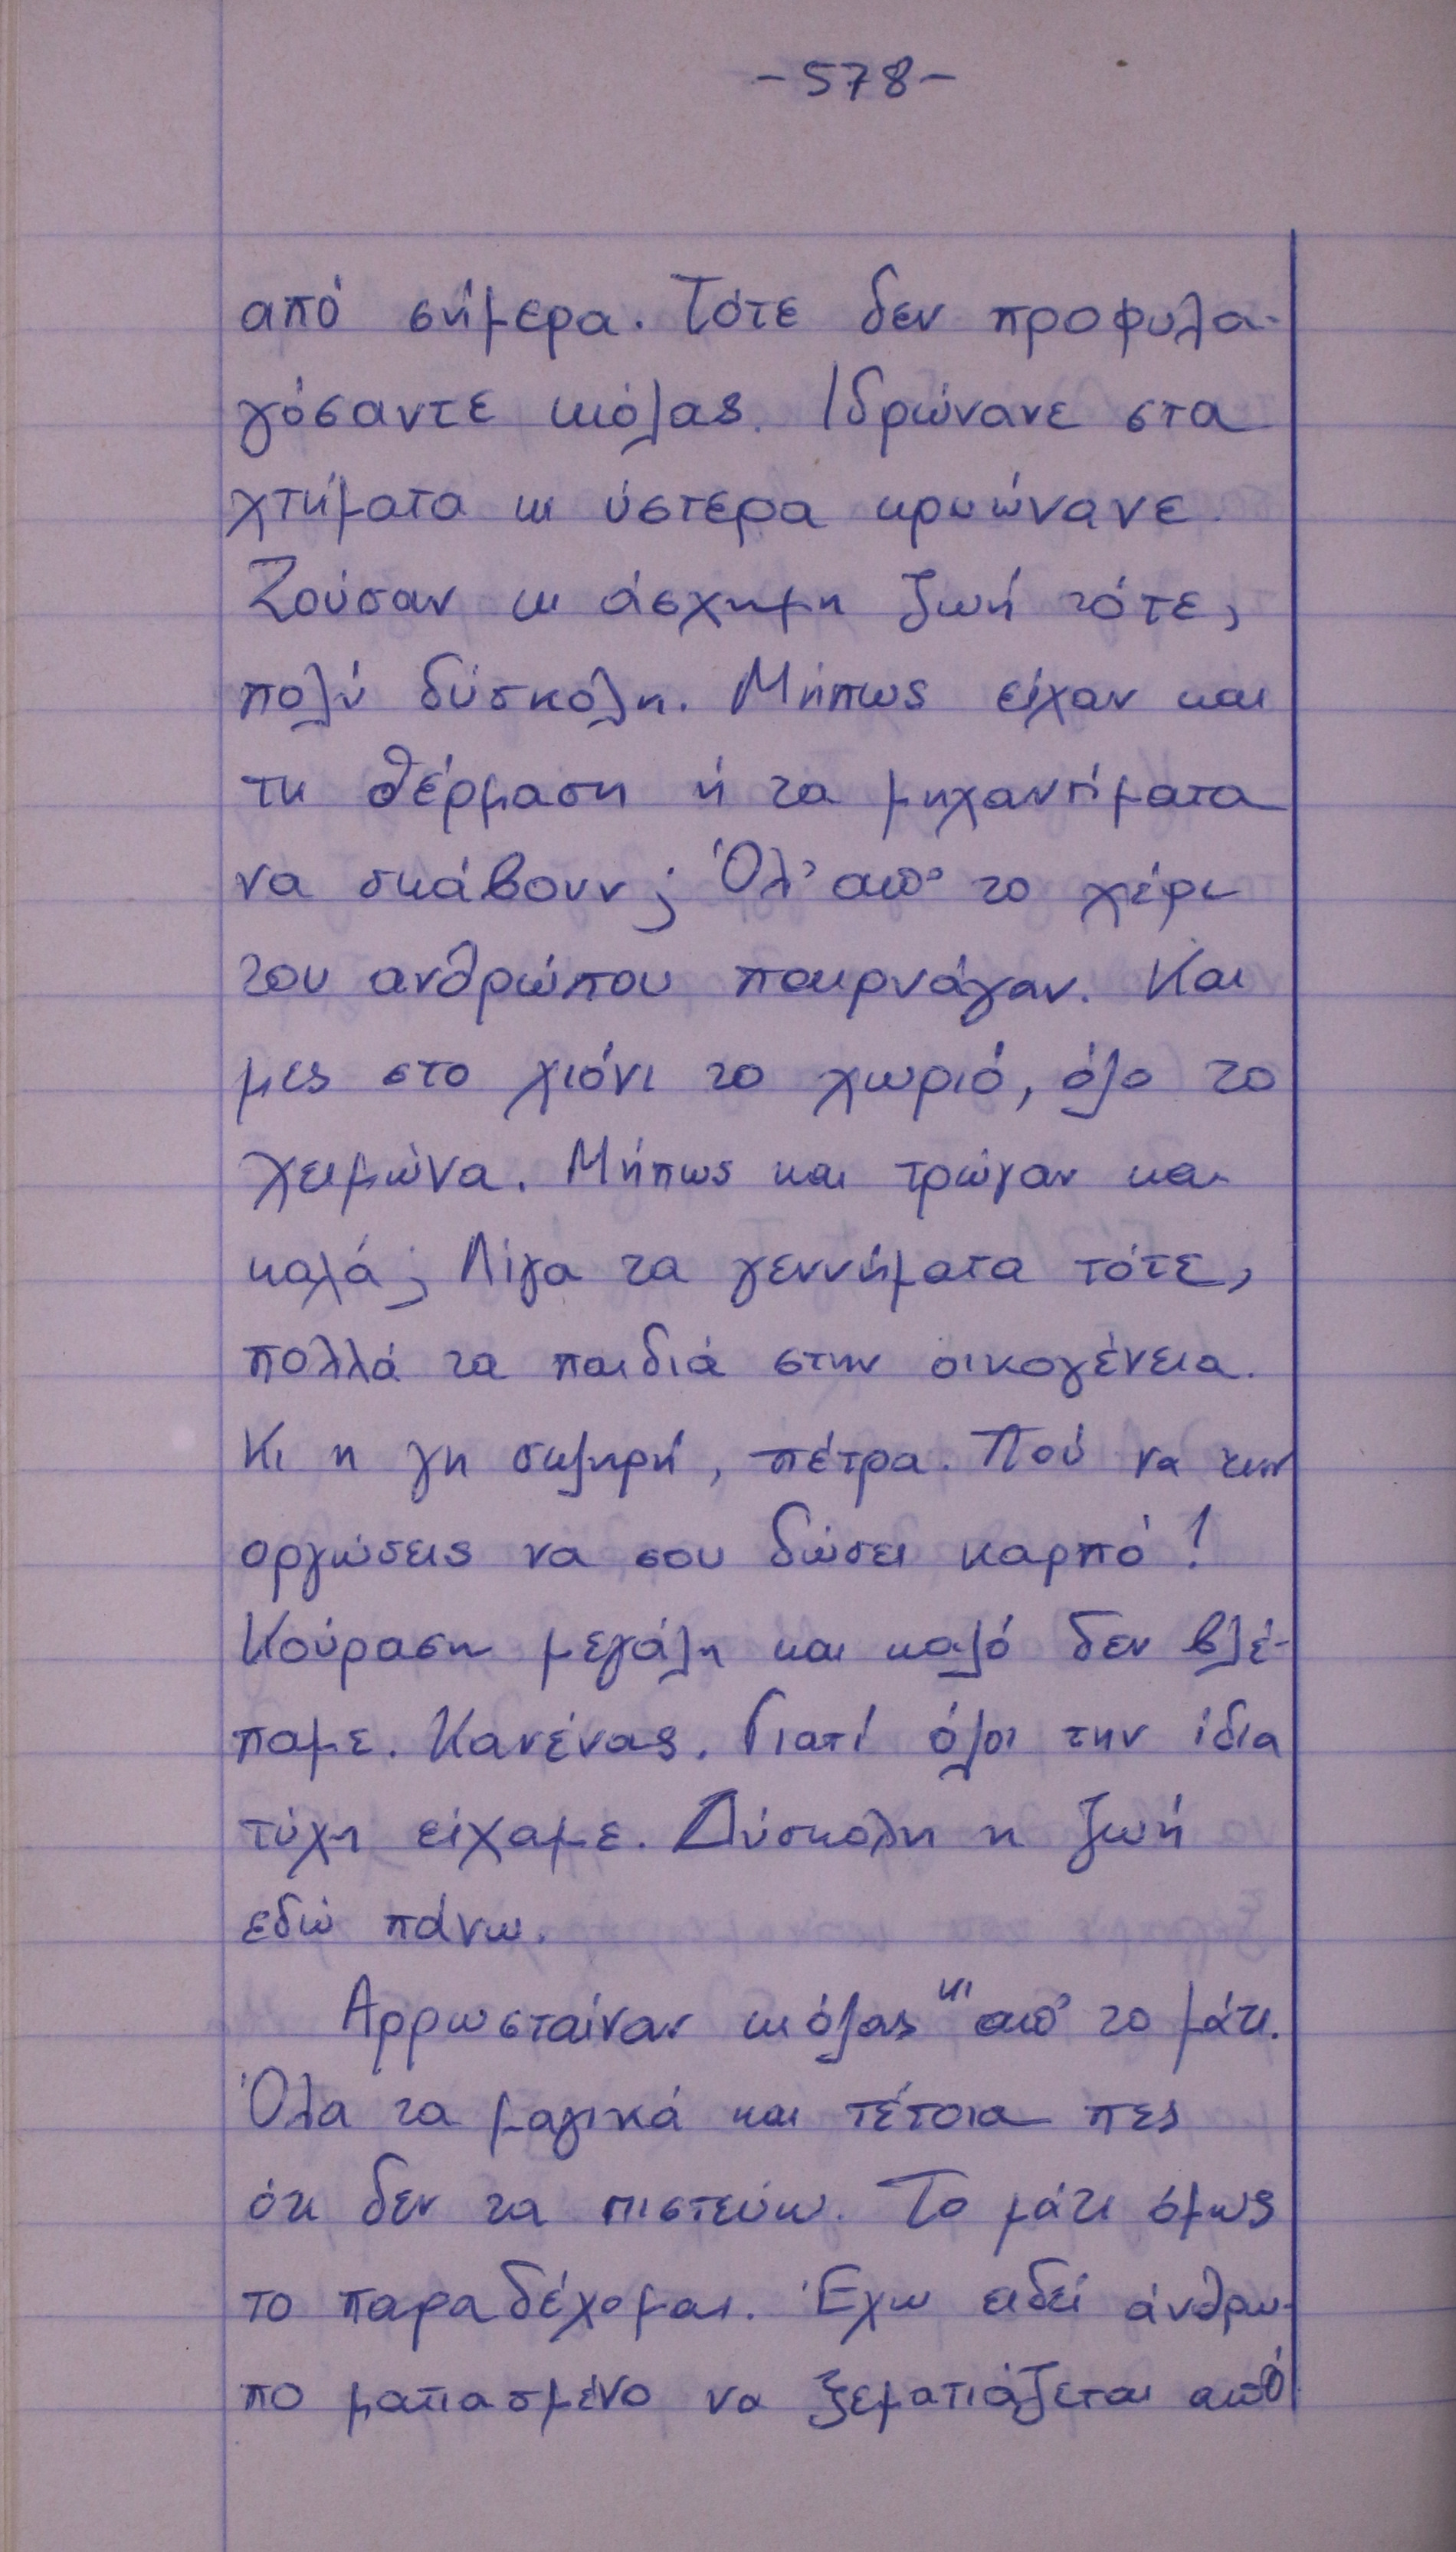 -578-
από σήμερα. Τότε δεν προφυλα-
γόσαντε κιόλας. Ιδρώνανε στα
χτήματα κι ύστερα κρυώνανε.
Ζούσαν κι άσχημη ζωή τότε,
πολύ δύσκολη. Μήπως είχαν και
τη θέρμαση ή τα μηχανήματα
να σκάβουν; Όλ' απ' το χέρι
του ανθρώπου παιρνάγαν. Και
μες στο χιόνι το χωριό, όλο το
χειμώνα. Μήπως και τρώγαν και
καλά; Λίγα τα γεννήματα τότε,
πολλά τα παιδιά στην οικογένεια.
Κι η γη σκληρή, πέτρα. Πού να την
οργώσεις να σου δώσει καρπό!
Κούραση μεγάλη και καλό δεν βλέ-
παμε. Κανένας. Γιατί όλοι την ίδια
τύχη είχαμε. Δύσκολη η ζωή
εδώ πάνω.
Αρρωσταίναν κιόλας κι απ' το μάτι.
Όλα τα μαγικά και τέτοια πες
ότι δεν τα πιστεύω. Το μάτι όμως
το παραδέχομαι. Έχω ειδεί άνθρω-
πο ματιασμένο να ξεματιάζεται από